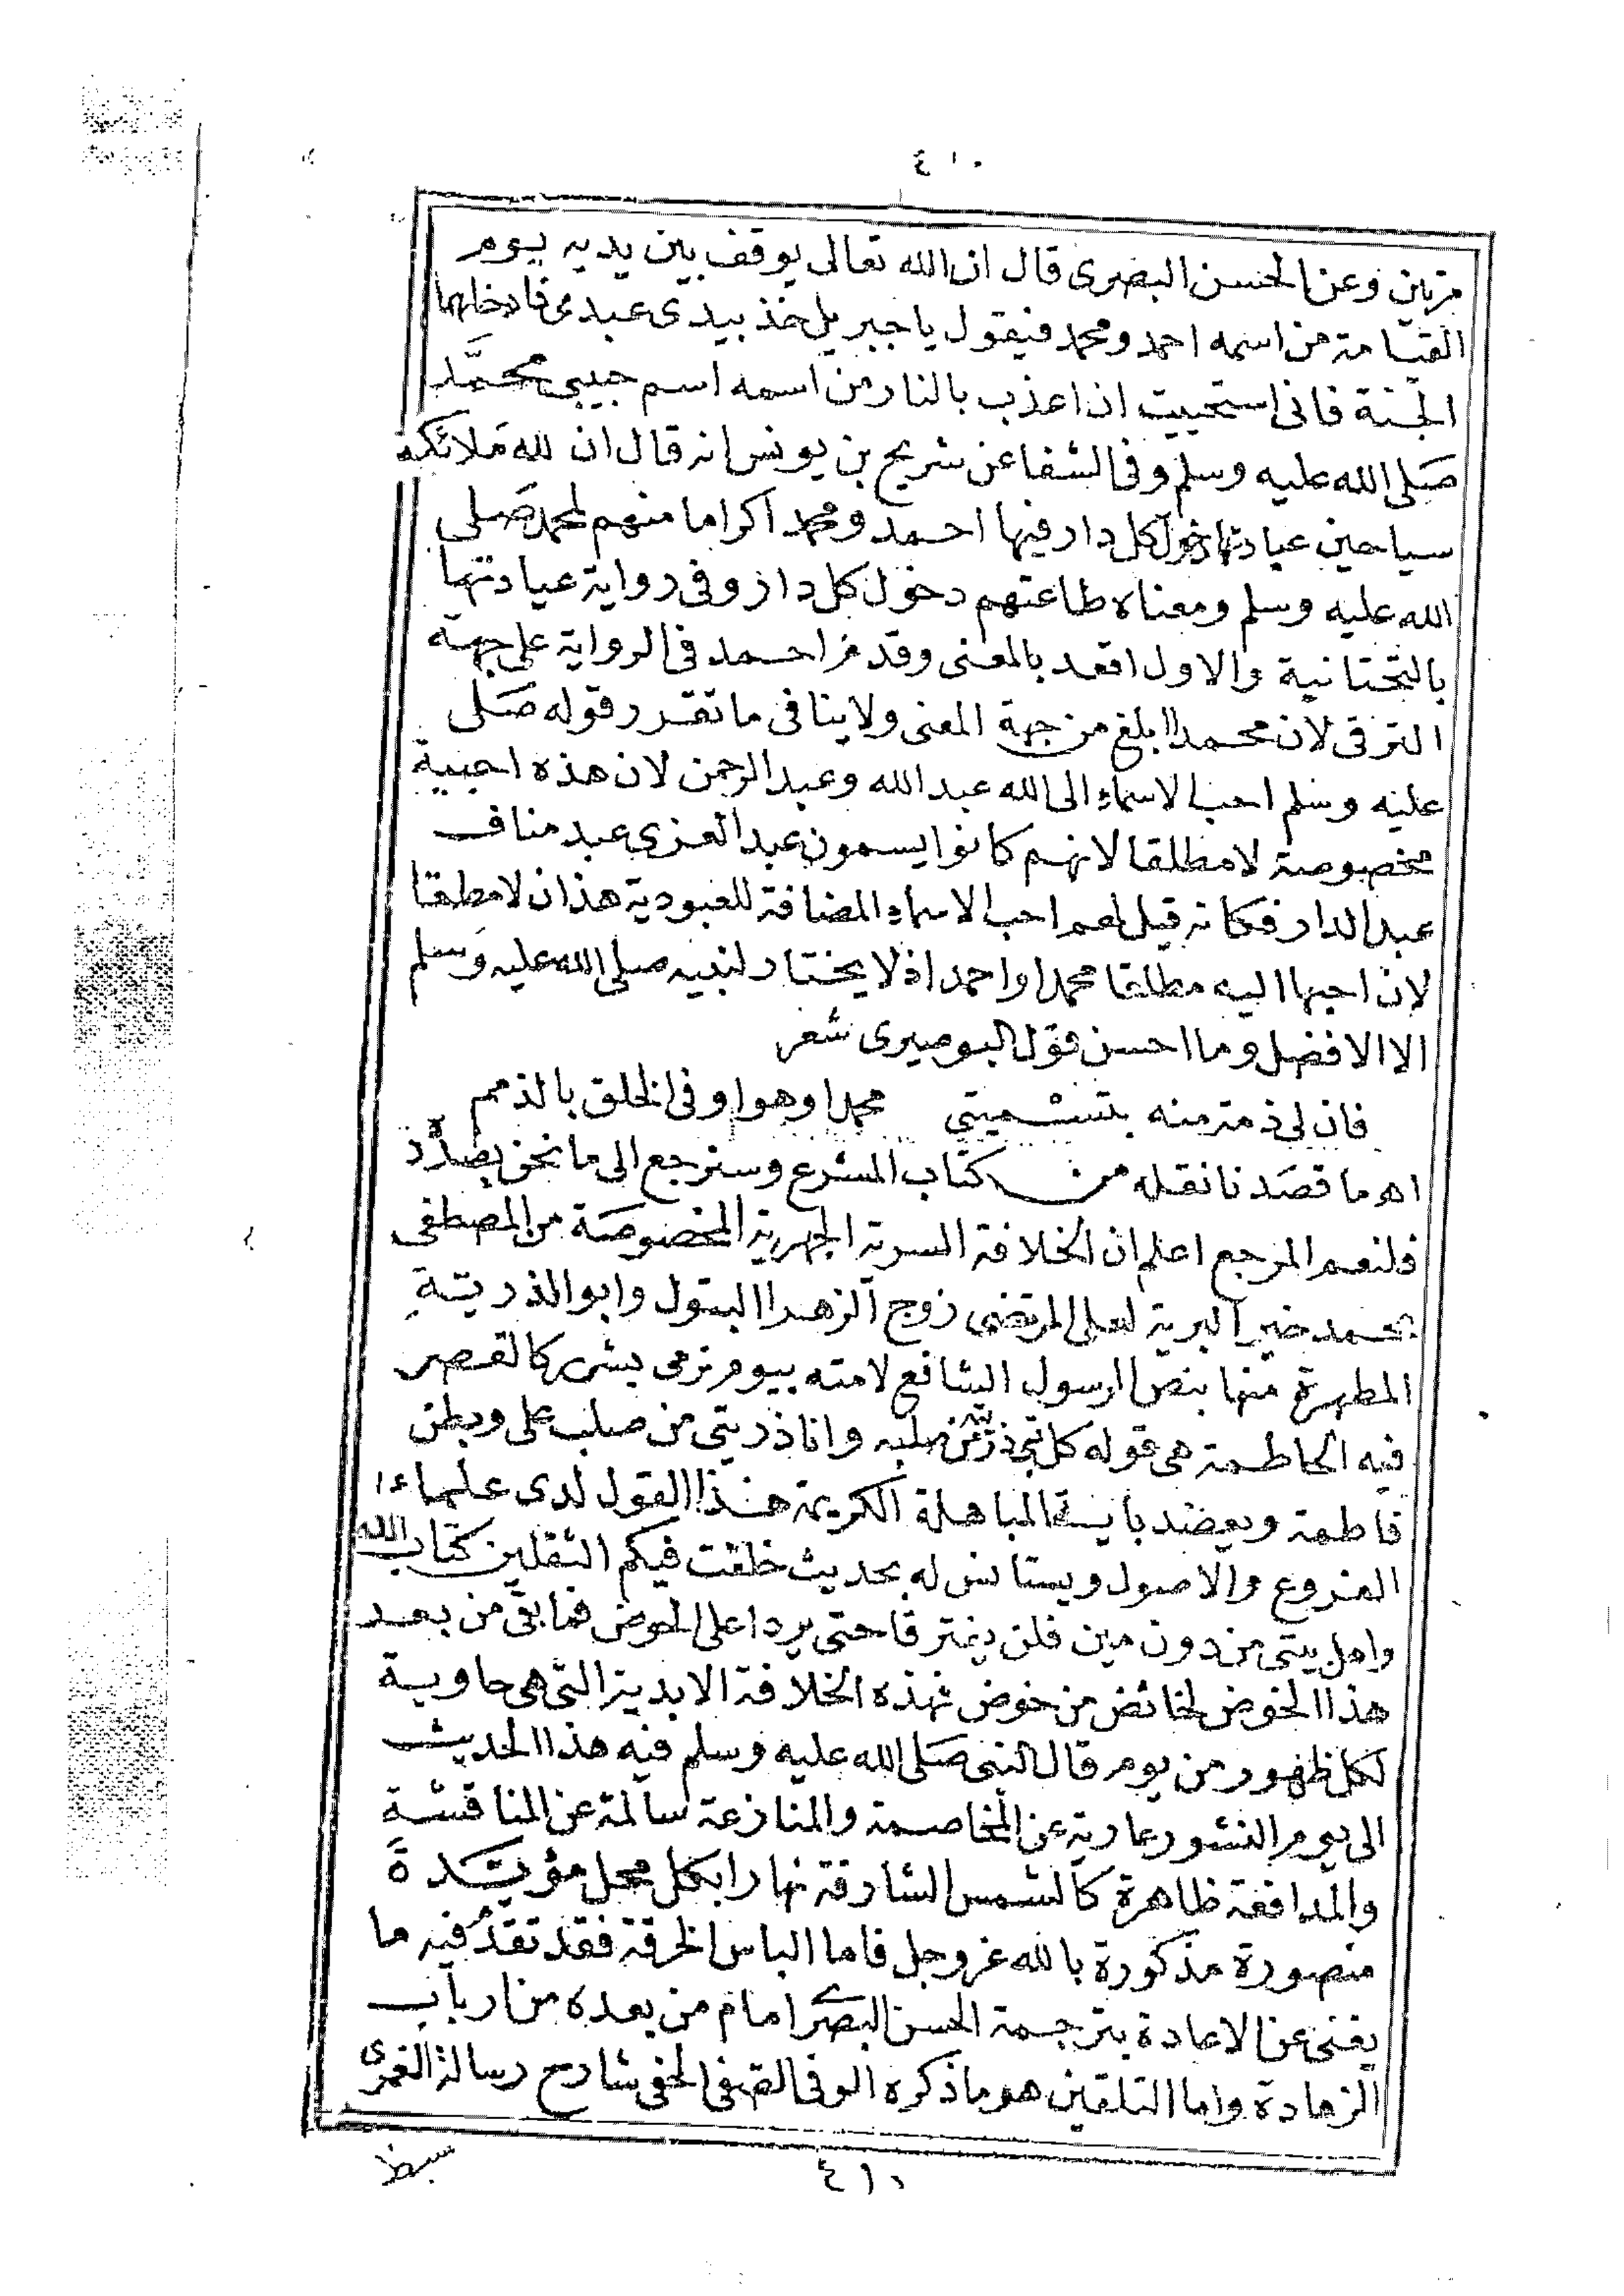 ٤١٠
مرتين وعن الحسن البصرى قال ان الله تعالى يوقف بين يديه يوم
القيامة من اسمه احمد ومحمد فيقول يا جبريل خذ بيدى عبدى فادخلهما
الجنة فانى استحييت ان اعذب بالنار من اسمه اسم حبيبى محمَّد
صَلى الله عليه وسلم وفى الشفا عن شريح بن يونس انه قال ان لله مَلائكة
سياحين عيادتها دخول كل دار فيها احمد ومحمد اكراما منهم لمحمد صَلى
الله عليه وسلم ومعناه طاعتهم دخول كل دار وفى رواية عيادتها
بالتحتانية والاول اقعد بالمعنى وقدم احمد فى الرواية على جهة
الترقى لان محمدا ابلغ من جهة المعنى ولا ينافى ما تقرر قوله صَلى
عليه وسلم احب الاسماء الى الله عبد الله وعبد الرحمن لان هذه احبية
مخصوصة لا مطلقا لانهم كانوا يسمون عبد العزى عبد مناف
عبد الدار فكانه قيل لهم احب الاسماء المضافة للعبودية هذان لا مطلقا
لان احبها اليه مطلقا محمد او احمد اذ لا يختار لنبيه صلى الله عليه وَسلم
الا الافضل وما احسن قول البوصيرى شعر
فان لى ذمة منه بتسميتي محمدا وهو اوفى الخلق بالذمم
اه ما قصَدنا نقله من كتاب المشرع وسنرجع الى ما نحن بصدد
فلنعم المرجع اعلم ان الخلافة السرية الجهرية المخصوصَة من المصطفى
محمد خير البرية لعلى المرتضى زوج الزهرا البتول وابو الذرية
المطهرة منها بنص الرسول الشافع لامته بيوم ترمى بشرر كالقصر
فيه الحاطمة هى قوله كل نبى ذريته من صلبه وانا ذريتى من صلب على وبطن
فاطمة ويعضد باية المباهلة الكريمة هذا القول لدى علماء
الفروع والاصول ويستانس له بحديث خلفت فيكم الثقلين كتاب الله
واهل بيتى من دون مين فلن يفترقا حتى يردا على الحوض فما بقى من بعد
هذا الخوض لخائض من خوض بهذه الخلافة الابدية التى هى حاوية
لكل ظهور من يوم قال النبى صَلى الله عليه وسلم فيه هذا الحديث
الى يوم النشور عارية عن المخاصمة والمنازعة سالمة عن المناقشة
والمدافعة ظاهرة كالشمس الشارقة نهارا بكل محل مؤيَّدة
منصورة مذكورة بالله عز وجل فاما الباس الخرقة فقد تقدم فيه ما
يغنى عن الاعادة بترجمة الحسن البصرى امام من بعده من ارباب
الزهادة واما التلقين هو ما ذكره الوفى الصفى الحفى شارح رسالة الغمرى
٤١٠